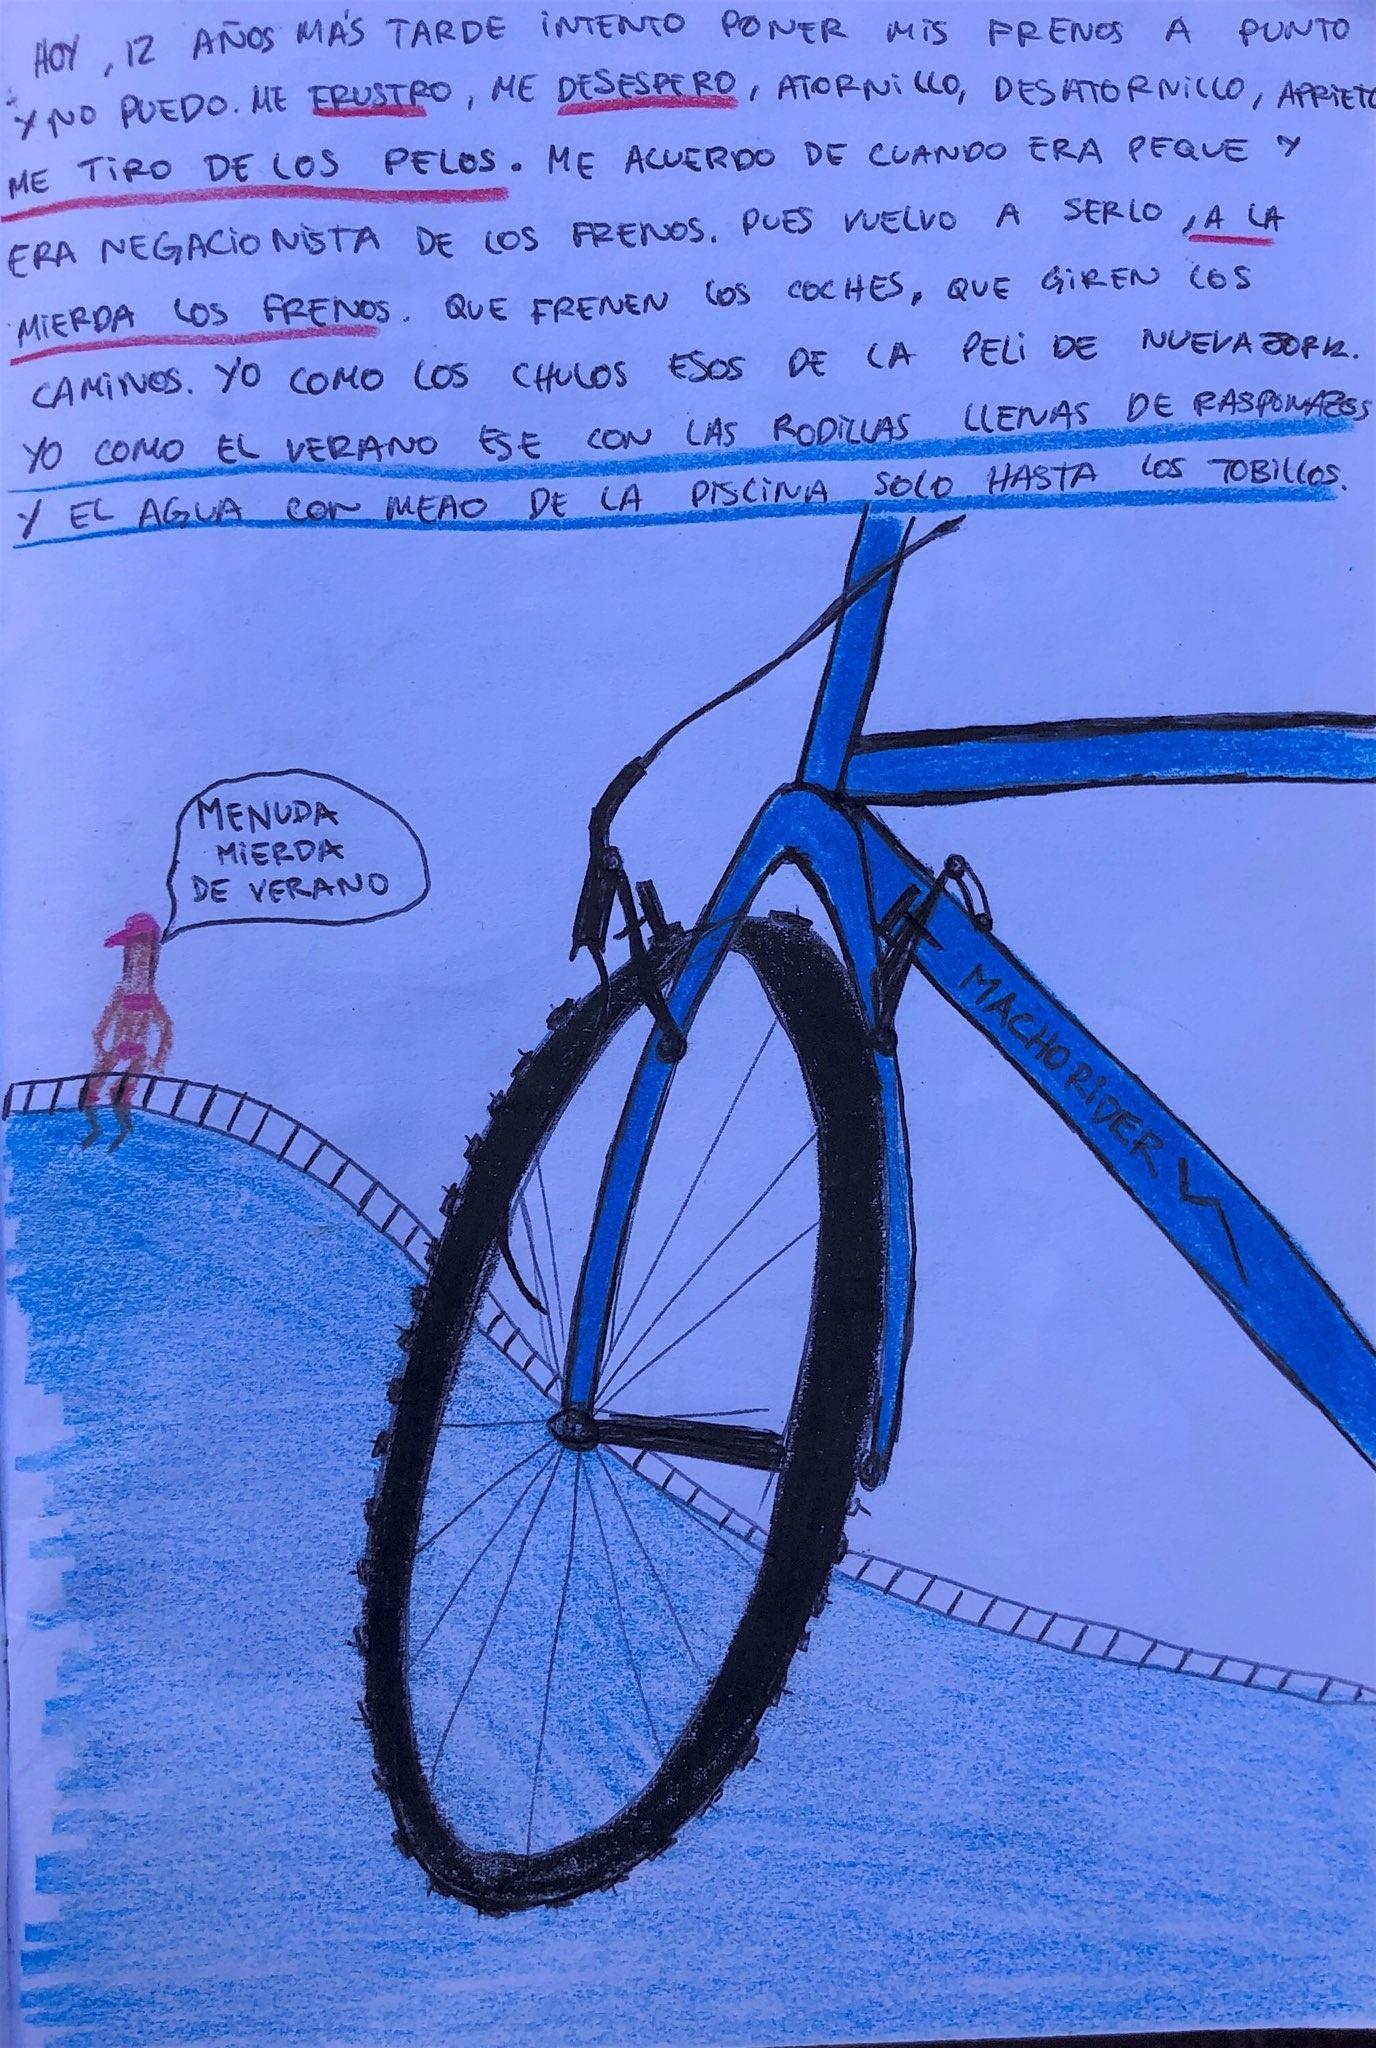 HOY, 12 AÑOS MÁS TARDE INTENTO PONER MIS FRENOS A PUNTO
Y NO PUEDO. ME FRUSTRO, ME DESESPERO, ATORNILLO, DESATORNILLO, APRIETO
ME TIRO DE LOS PELOS. ME ACUERDO DE CUANDO ERA PEQUE Y
ERA NEGACIONISTA DE LOS FRENOS. PUES VUELVO A SERLO, A LA
MIERDA LOS FRENOS. QUE FRENEN LOS COCHES, QUE GIREN LOS
CAMINOS. YO COMO LOS CHULOS ESOS DE LA PELI DE NUEVA JORK.
YO COMO EL VERANO ESE CON LAS RODILLAS LLENAS DE RASPONAZOS
Y EL AGUA CON MEAO DE LA PISCINA SOLO HASTA LOS TOBILLOS.
MENUDA
MIERDA
DE VERANO
MACHORIDER